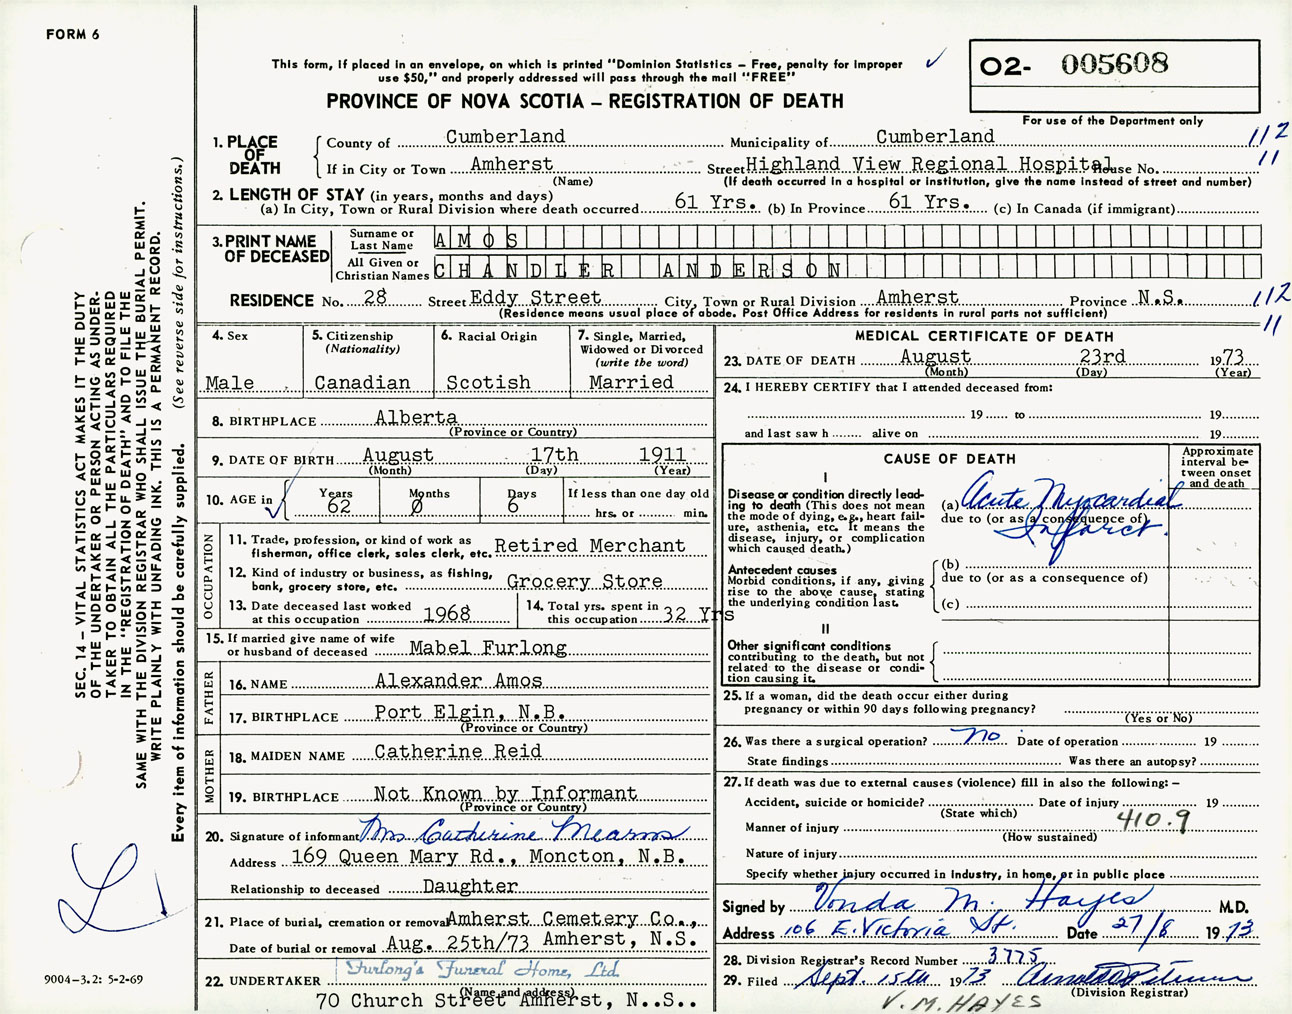 FORM 6
This form, if placed in an envelope, on which is printed "Dominion Statistics – Free, penalty for improper
use $50," and properly addressed will pass through the mail "FREE"
PROVINCE OF NOVA SCOTIA – REGISTRATION OF DEATH
O2- 005608
For use of the Department only
1. PLACE OF DEATH
County of Cumberland Municipality of Cumberland 112
If in City or Town Amherst Street Highland View Regional Hospital House No. 11
(Name) (If death occurred in a hospital or institution, give the name instead of street and number)
2. LENGTH OF STAY (in years, months and days)
(a) In City, Town or Rural Division where death occurred 61 Yrs. (b) In Province 61 Yrs. (c) In Canada (if immigrant)
3. PRINT NAME OF DECEASED
Surname or Last Name AMOS
All Given or Christian Names CHANDLER ANDERSON
RESIDENCE No. 28 Street Eddy Street City, Town or Rural Division Amherst Province N.S. 112
(Residence means usual place of abode. Post Office Address for residents in rural parts not sufficient) 11
SEC. 14 – VITAL STATISTICS ACT MAKES IT THE DUTY
OF THE UNDERTAKER OR PERSON ACTING AS UNDER-
TAKER TO OBTAIN ALL THE PARTICULARS REQUIRED
IN THE "REGISTRATION OF DEATH" AND TO FILE THE
SAME WITH THE DIVISION REGISTRAR WHO SHALL ISSUE THE BURIAL PERMIT.
WRITE PLAINLY WITH UNFADING INK. THIS IS A PERMANENT RECORD.
Every item of information should be carefully supplied. (See reverse side for instructions.)
9004-3.2: 5-2-69
4. Sex
Male
5. Citizenship
(Nationality)
Canadian
6. Racial Origin
Scotish
7. Single, Married,
Widowed or Divorced
(write the word)
Married
8. BIRTHPLACE Alberta
(Province or Country)
9. DATE OF BIRTH August 17th 1911
(Month) (Day) (Year)
10. AGE in Years Months Days If less than one day old
62 0 6 hrs. or min.
OCCUPATION
11. Trade, profession, or kind of work as
fisherman, office clerk, sales clerk, etc. Retired Merchant
12. Kind of industry or business, as fishing,
bank, grocery store, etc. Grocery Store
13. Date deceased last worked
at this occupation 1968
14. Total yrs. spent in
this occupation 32 Yrs
15. If married give name of wife
or husband of deceased Mabel Furlong
FATHER
16. NAME Alexander Amos
17. BIRTHPLACE Port Elgin, N.B.
(Province or Country)
MOTHER
18. MAIDEN NAME Catherine Reid
19. BIRTHPLACE Not Known by Informant
(Province or Country)
20. Signature of informant Mrs Catherine Mearns
Address 169 Queen Mary Rd., Moncton, N.B.
Relationship to deceased Daughter
21. Place of burial, cremation or removal Amherst Cemetery Co.,
Date of burial or removal Aug. 25th/73 Amherst, N.S.
22. UNDERTAKER Furlong's Funeral Home, Ltd.
(Name and address)
70 Church Street Amherst, N..S..
MEDICAL CERTIFICATE OF DEATH
23. DATE OF DEATH August 23rd 1973
(Month) (Day) (Year)
24. I HEREBY CERTIFY that I attended deceased from:
19 to 19
and last saw h alive on 19
CAUSE OF DEATH
Approximate interval between onset and death
I
Disease or condition directly lead-
ing to death (This does not mean
the mode of dying, e.g., heart fail-
ure, asthenia, etc. It means the
disease, injury, or complication
which caused death.)
(a) Acute Myocardial
due to (or as a consequence of)
Infarct.
Antecedent causes
Morbid conditions, if any, giving
rise to the above cause, stating
the underlying condition last.
(b)
due to (or as a consequence of)
(c)
II
Other significant conditions
contributing to the death, but not
related to the disease or condi-
tion causing it.
25. If a woman, did the death occur either during
pregnancy or within 90 days following pregnancy?
(Yes or No)
26. Was there a surgical operation? no Date of operation 19
State findings Was there an autopsy?
27. If death was due to external causes (violence) fill in also the following: –
Accident, suicide or homicide? Date of injury 19
(State which)
410.9
Manner of injury
(How sustained)
Nature of injury
Specify whether injury occurred in industry, in home, or in public place
Signed by Vonda M. Hayes M.D.
Address 106 E. Victoria St. Date 27/8 1973
28. Division Registrar's Record Number 3775
29. Filed Sept. 15th 1973
(Division Registrar)
V. M. HAYES